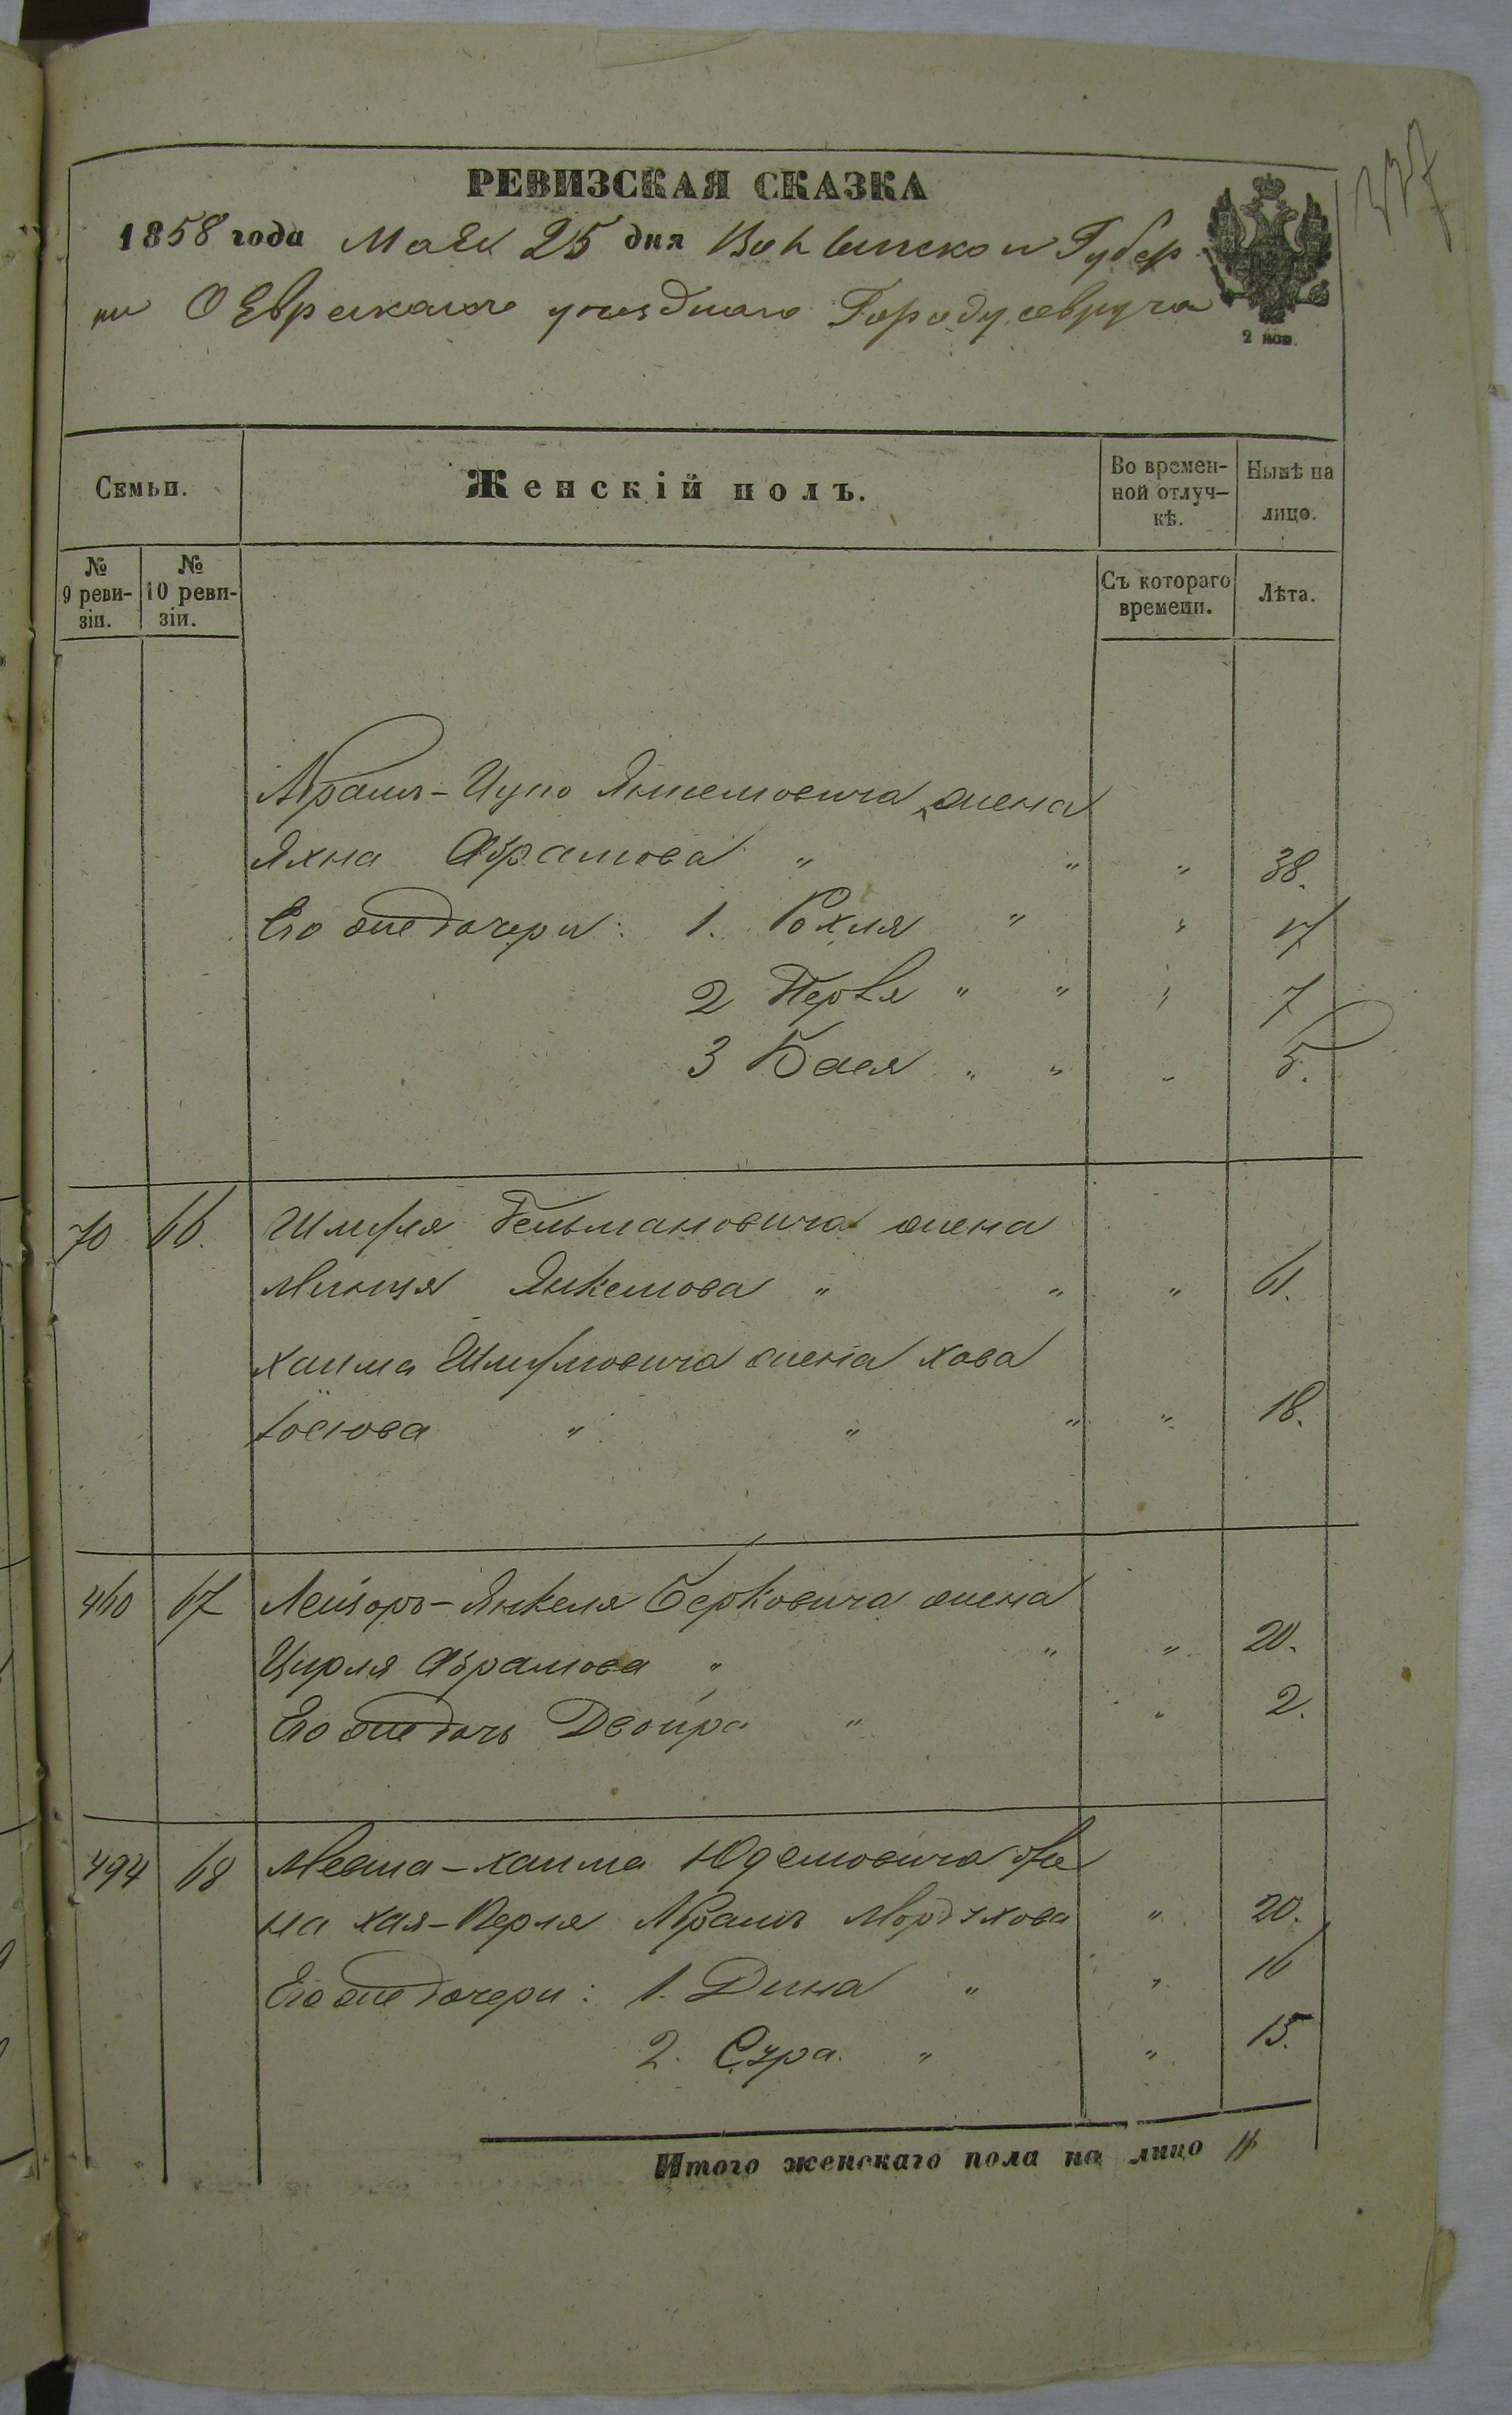 337
РЕВИЗСКАЯ СКАЗКА
1858 года Маiя 25 дня Волынской Губер
нiи О Евреяхъ уезднаго Города Овруча
2 коп.
Семьи. Женскiй полъ. Во времен-ной отлуч-кѣ. Нынѣ на лицо.
№ 9 реви-зiи. № 10 реви-зiи. Съ котораго времени. Лѣта.
Абрамъ-Ицко Янкелiовича жена
Яхна Абрамова " " " 38.
Его же дочери: 1. Рохля " " 17
2 Перля " " " 7
3 Бася " " " 5.
70 66. Шмуля Гельмановича жена
Минця Янкелiова " " " 61.
Хаима Шмулiовича жена Хава
Iосiова " " " " 18.
460 67 Лейзоръ-Янкеля Берковича жена
Цирля Абрамова " " " 20.
Его же дочь Двойра " " 2.
494 68 Мевша-Хаима Юделiовича же
на Хая-Перля Абрамъ Мордухова " 20.
Его же дочери: 1. Дина " " 16
2. Сура. " " 15.
Итого женскаго пола на лицо 11